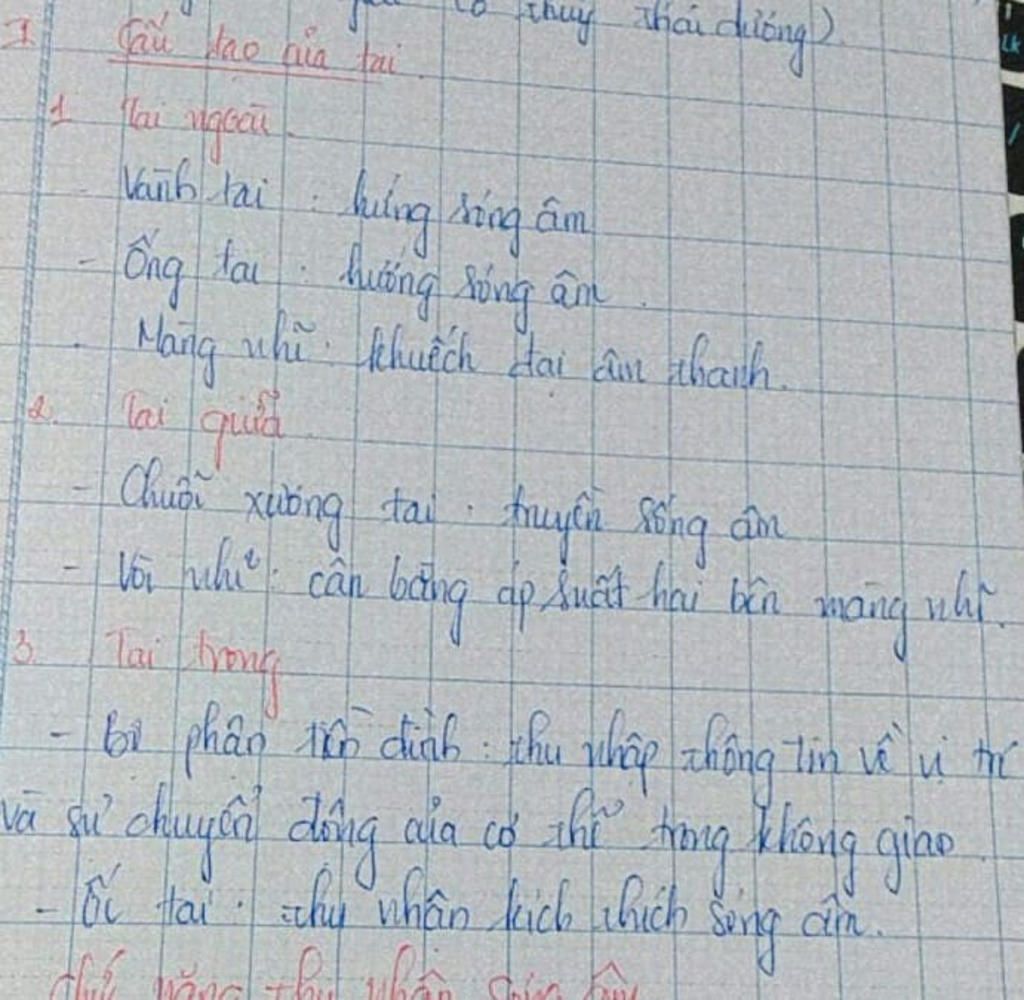 ở thuỳ thái dương)
I Cấu tạo của tai.
1 Tai ngoài.
- Vành tai : hứng sóng âm
- Ống tai : hướng sóng âm.
- Màng nhĩ : khuếch đại âm thanh.
2. Tai giữa
- Chuỗi xương tai : truyền sóng âm
- Vòi nhĩ : cân bằng áp suất hai bên màng nhĩ.
3. Tai trong
- Bộ phận tiền đình : thu nhập thông tin về vị trí
và sự chuyển động của cơ thể trong không giao.
- Ốc tai : thu nhận kích thích sóng âm.
năng thu nhận sóng âm